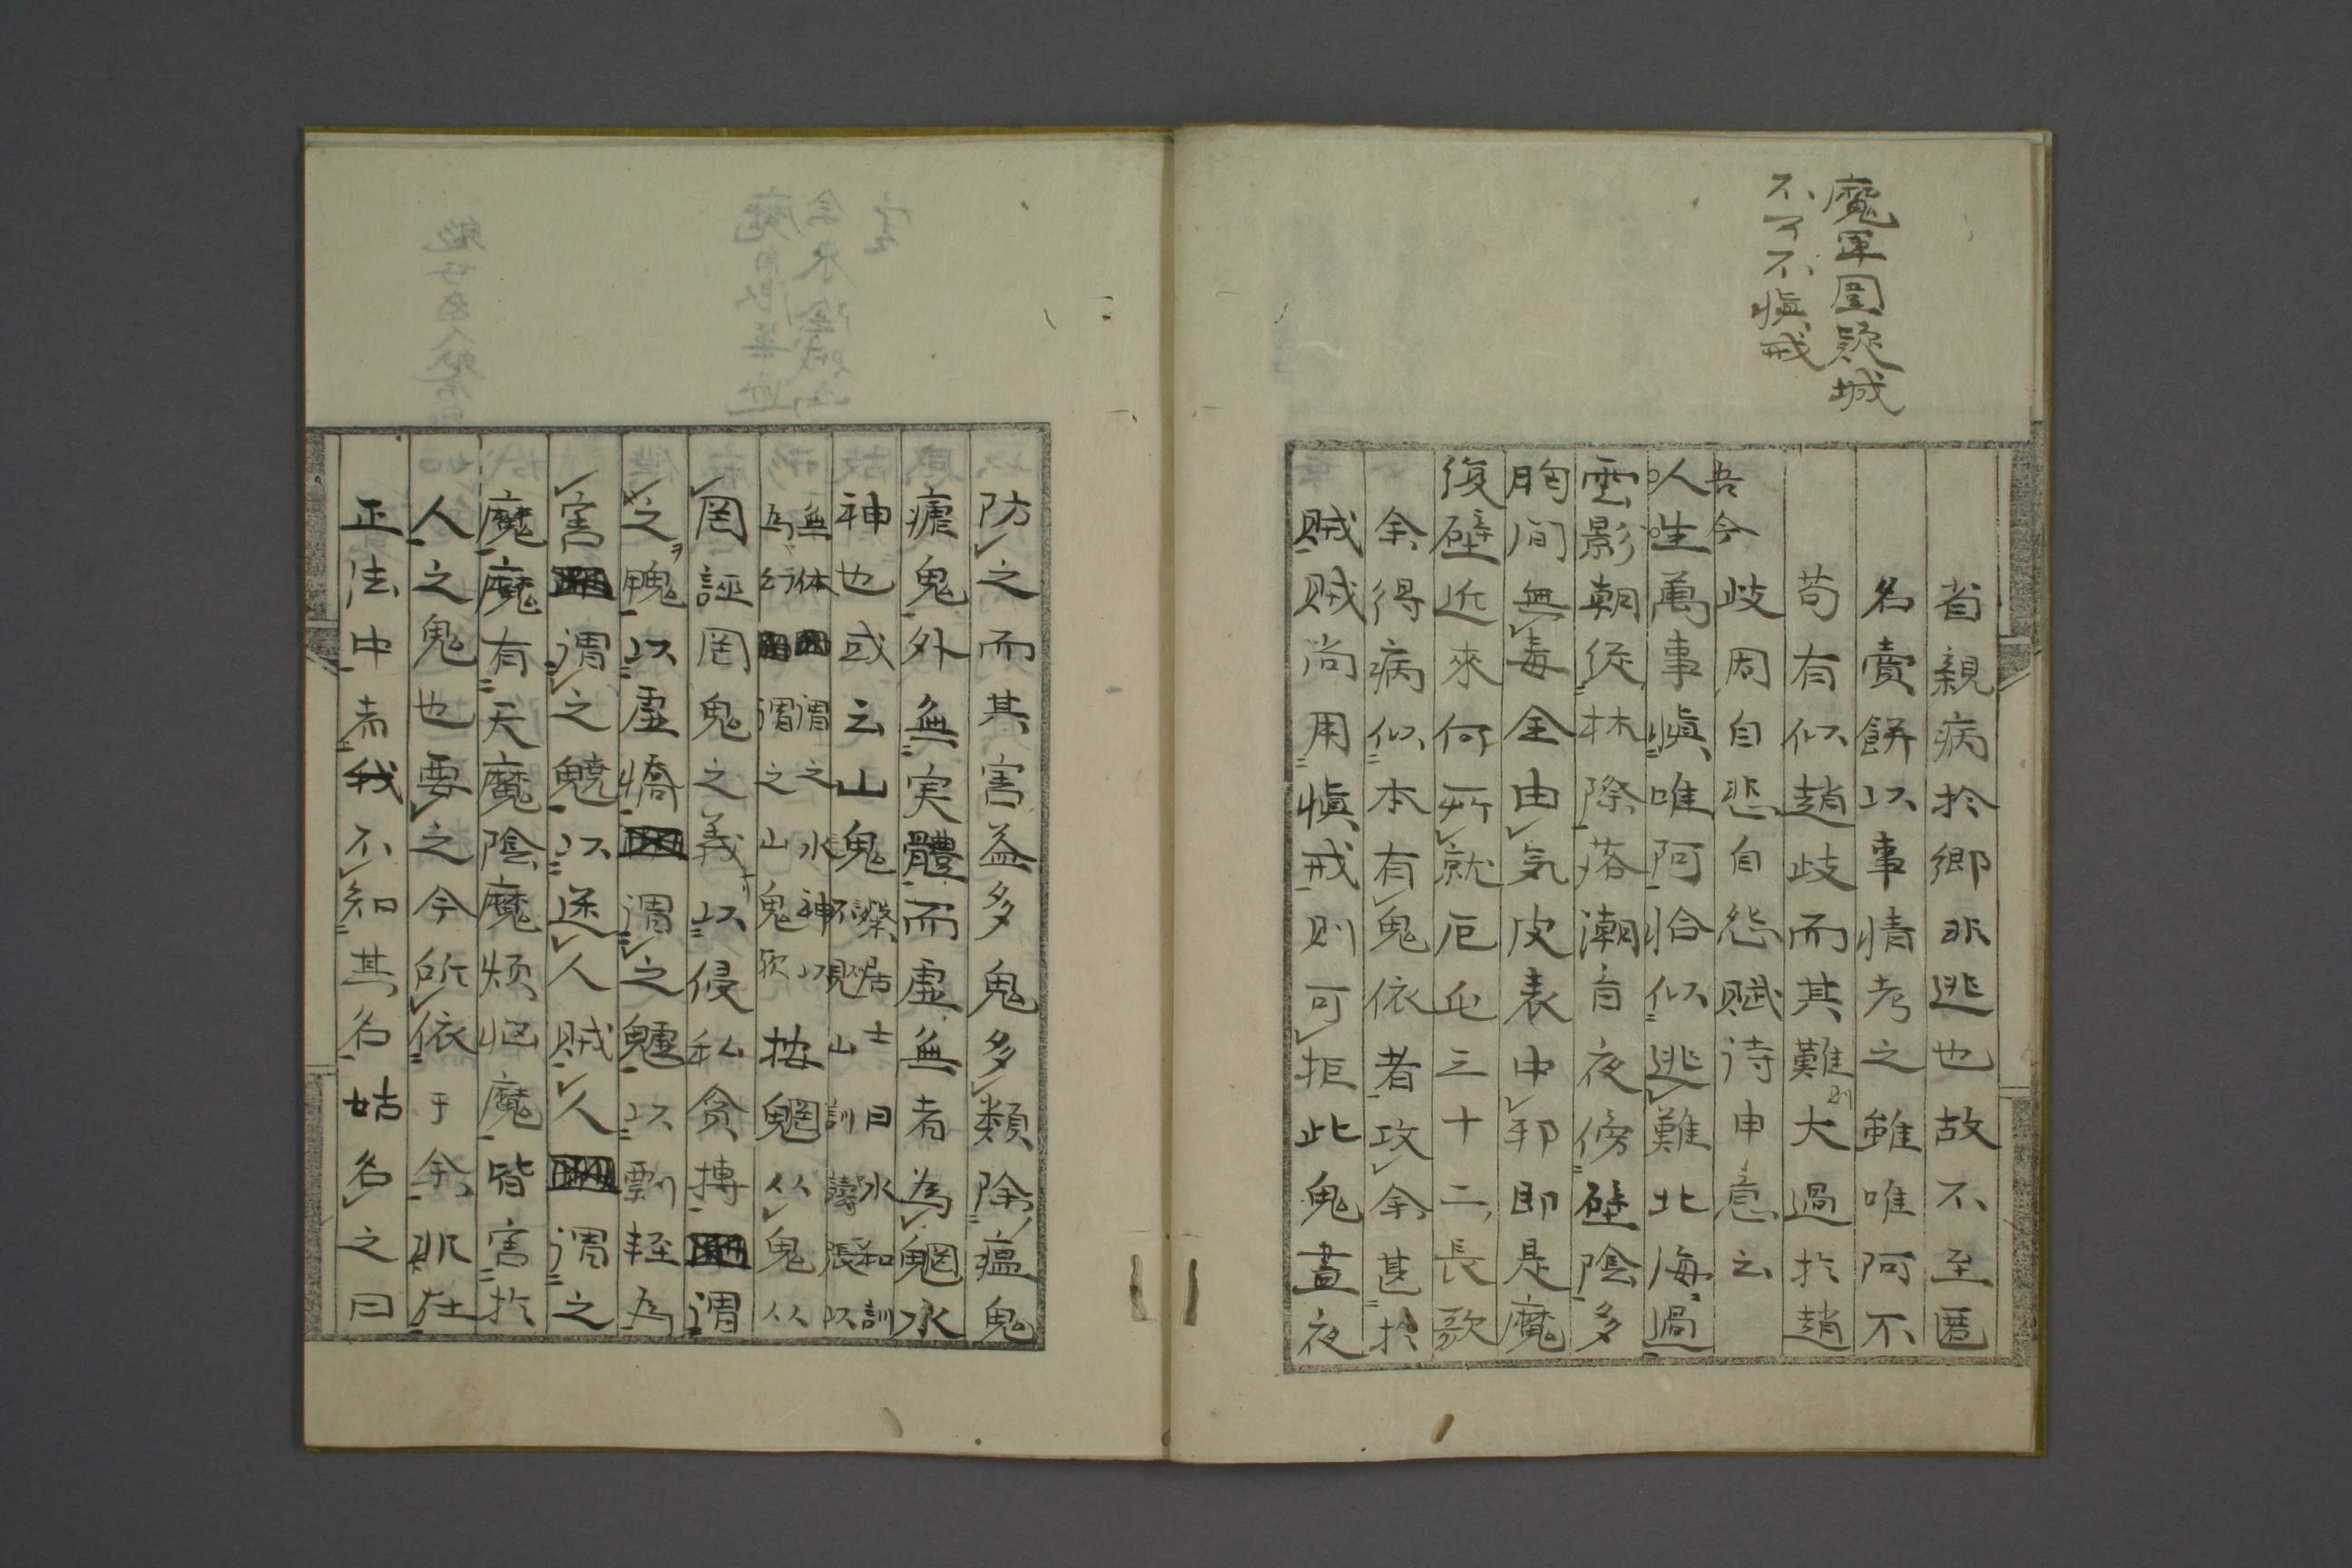 魔軍圍疑城
不可不愼戒
省親病於鄉非逃也故不至匿
名賣餅以事情考之雖唯阿不
苟有似趙歧而其難大過於趙
吾今歧周自悲自怨賦待申意云
人生萬事愼唯阿恰似逃難北海過
雲影朝従林際落潮音夜傍壁陰多
胸間無毒全由気皮表中邪即是魔
復壁近來何所就厄屯三十二長歌
余得病似本有鬼依者攻余甚於
賊賊尚用愼戒則可拒此鬼晝夜
防之而其害益多鬼多類除瘟鬼
瘧鬼外無実體而虛無者為魍水
神也或云山鬼
無体謂之水神以
為行謂之山鬼欤
按魍从鬼从
罔誣罔鬼之義以侵私貪摶謂
之魄以虛憍謂之魖以剽輕為
害謂之魈以逐人賊人謂之
魔魔有天魔陰魔煩惱魔皆害於
人之鬼也要之今所依于余非在
正法中者我不知其名姑名之曰